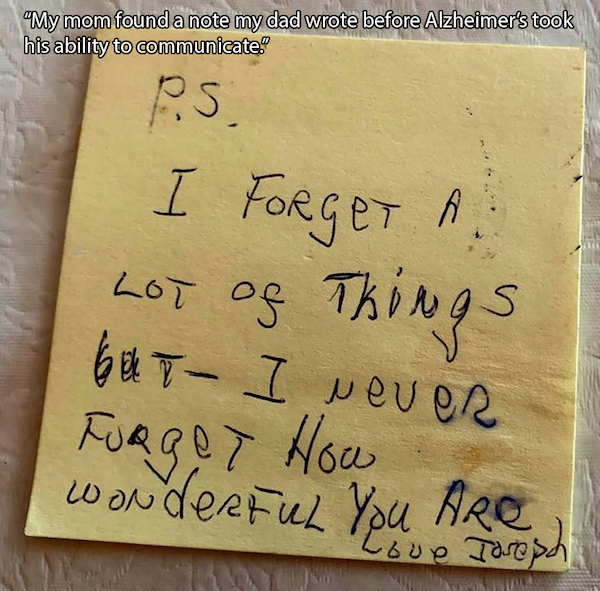 “My mom found a note my dad wrote before Alzheimer's took
his ability to communicate.”
P.S.
I FORgeT A
LOT OF THiNgS
buT- I NeveR
FORgeT How
woNdeRFuL You ARe
Love Joseph